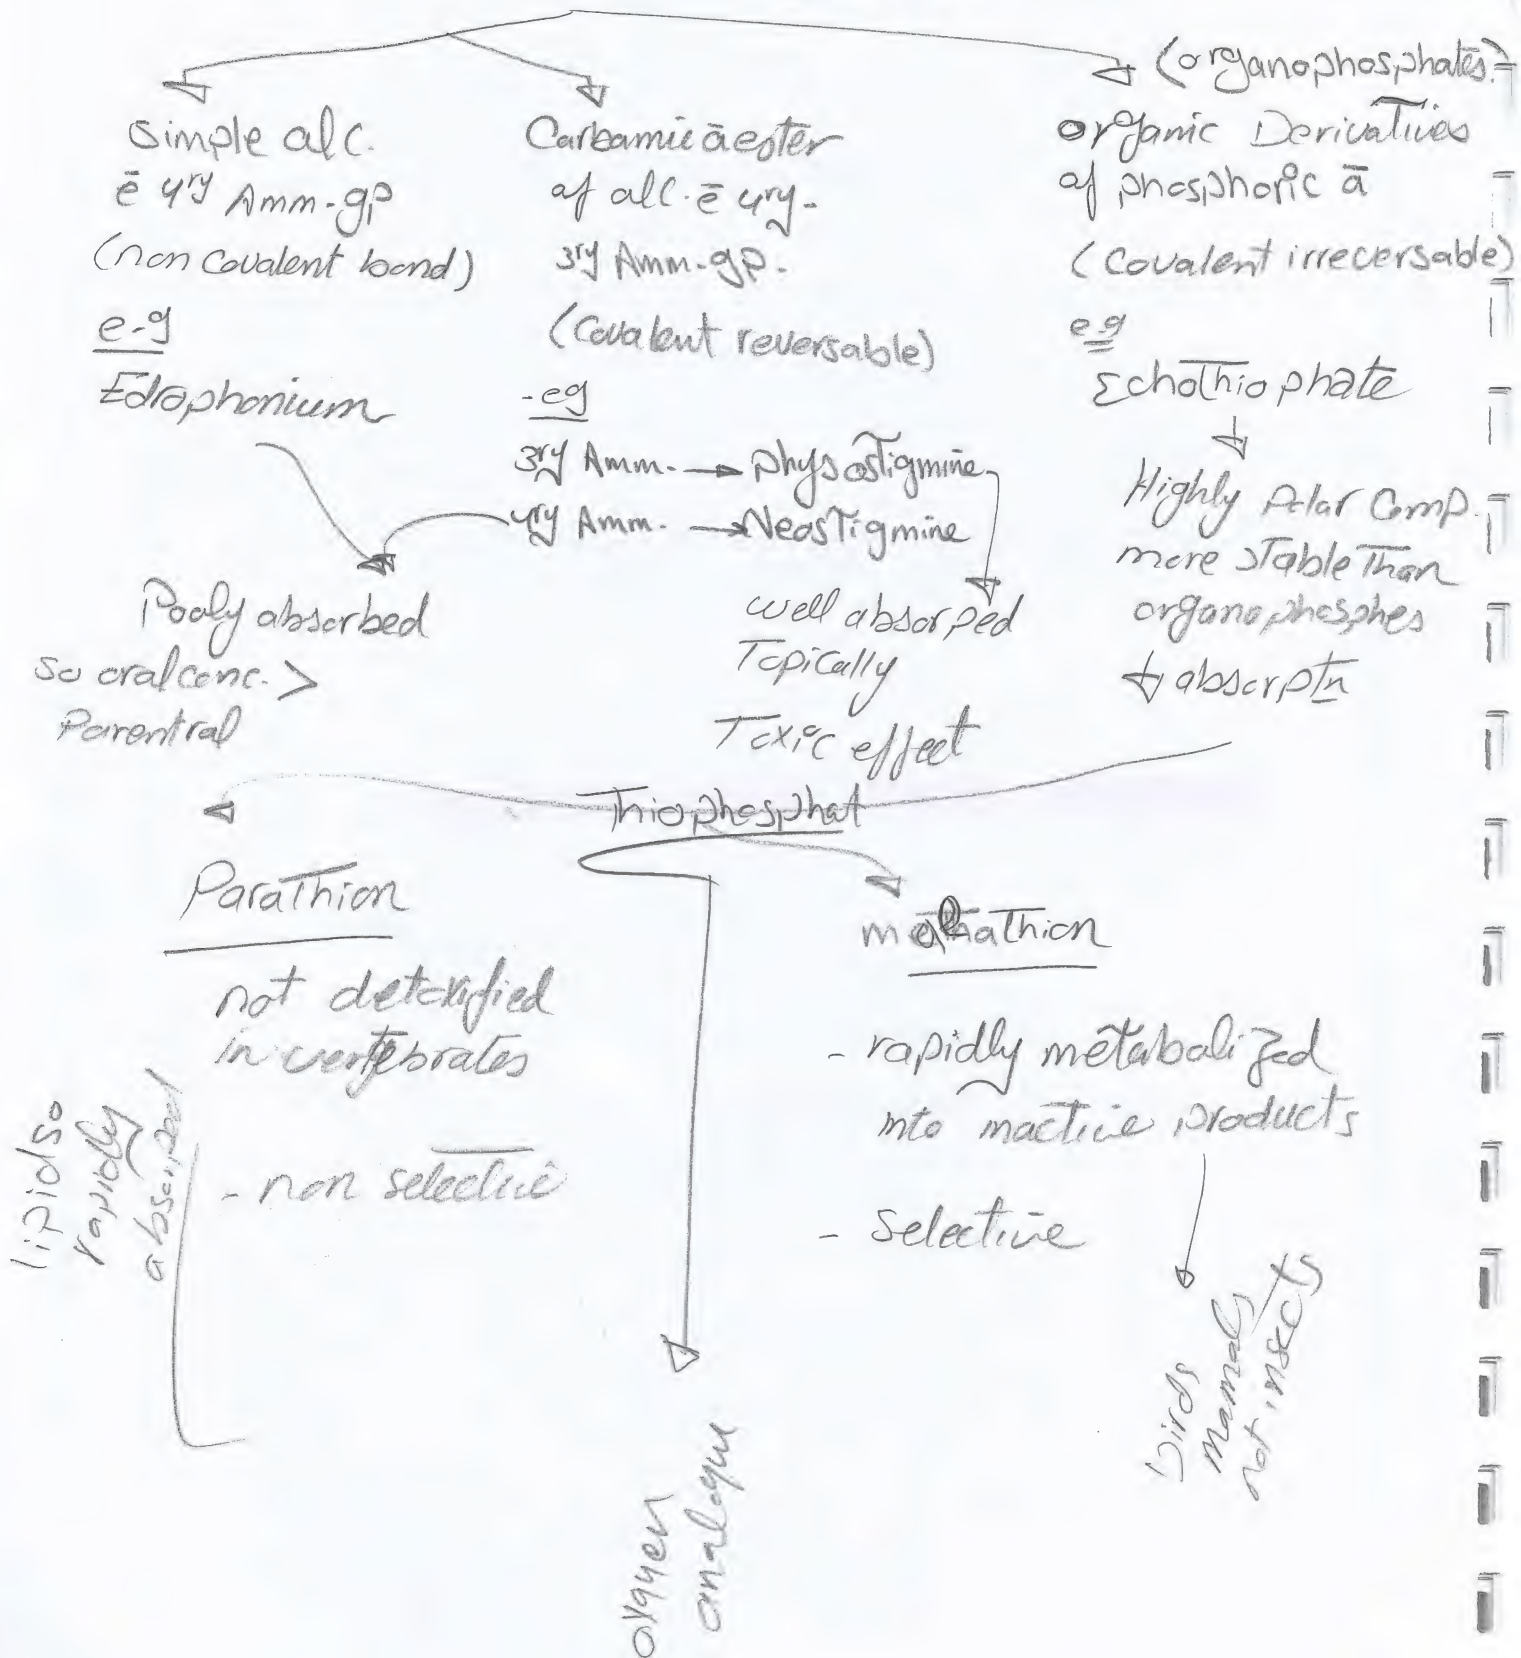 Simple alc.
ē 4ry Amm-gp
(non covalent bond)
e-g
Edrophonium
Carbamic ā ester
of alc. ē 4ry-
3ry Amm-gp.
(Covalent reversable)
-eg
3ry Amm. → physostigmine
4ry Amm. → Neostigmine
(organophosphates)
organic Derivatives
of phosphoric ā
(Covalent irreversable)
eg
Echothiophate
Highly Polar Comp.
more stable Than
organophosphes
↓ absorptn
Pooly absorbed
so oral conc. >
Parentral
well absorped
Topically
Toxic effect
Thiophosphat
Parathion
not detoxified
in vertebrates
- non selective
lipid so
rapidly
absorped
malathion
- rapidly metabolized
into inactive products
- Selective
Birds
Mamals
not insects
oxygen
analogue